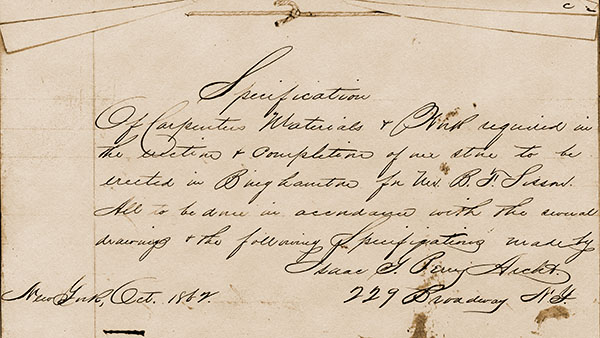 Specification
Of Carpenters Materials & Work required in
the erection & completion of one store to be
erected in Binghamton for Mr. B. F. Sisson.
All to be done in accordance with the several
drawings & the following Specifications made by
Isaac G. Perry Archt.
New York, Oct. 1862. 229 Broadway N.Y.